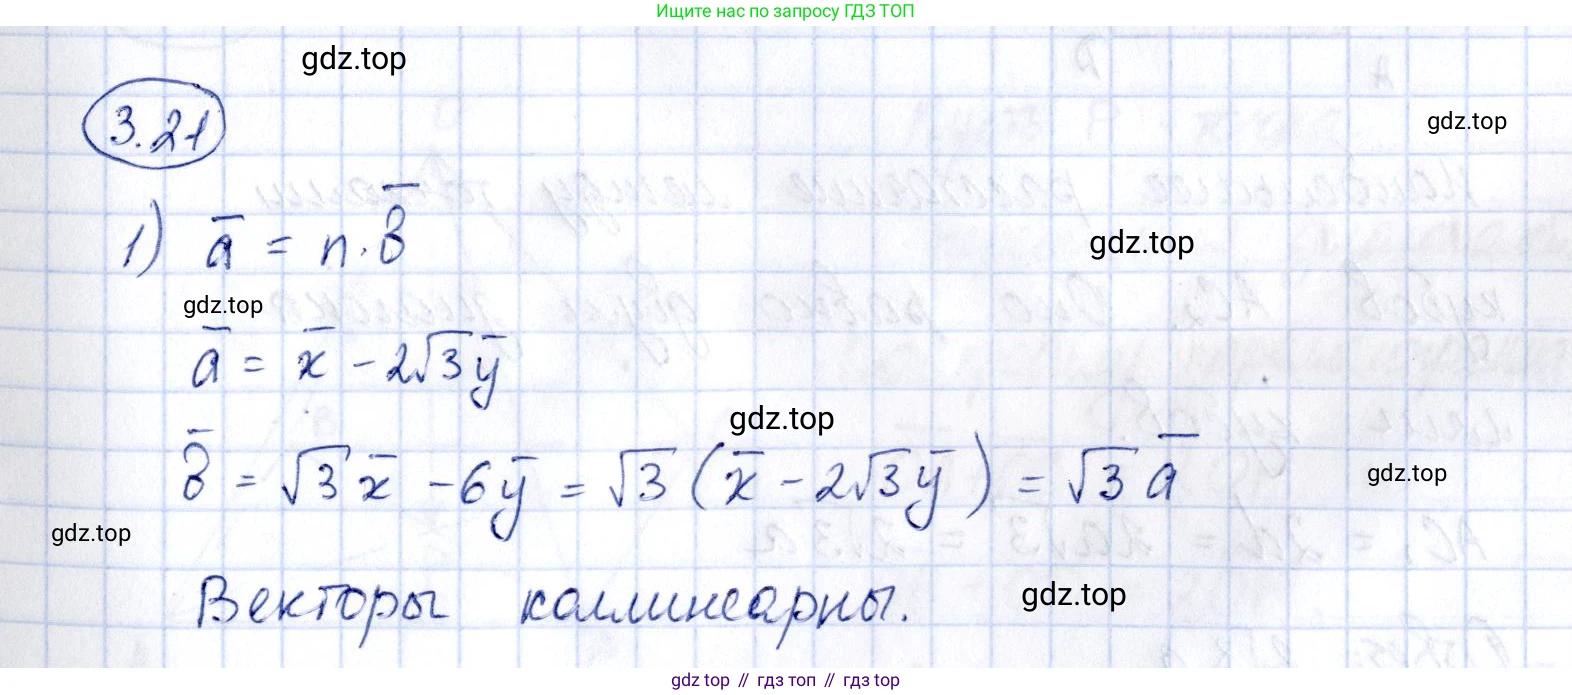 Ищите нас по запросу ГДЗ ТОП
gdz.top
3.21
gdz.top
1) a̅ = n · b̅
gdz.top
gdz.top
a̅ = x̅ - 2√3 y̅
gdz.top
b̅ = √3 x̅ - 6y̅ = √3 (x̅ - 2√3 y̅) = √3 a̅
gdz.top
gdz.top
Векторы коллинеарны.
gdz.top
gdz top // гдз топ // гдз top